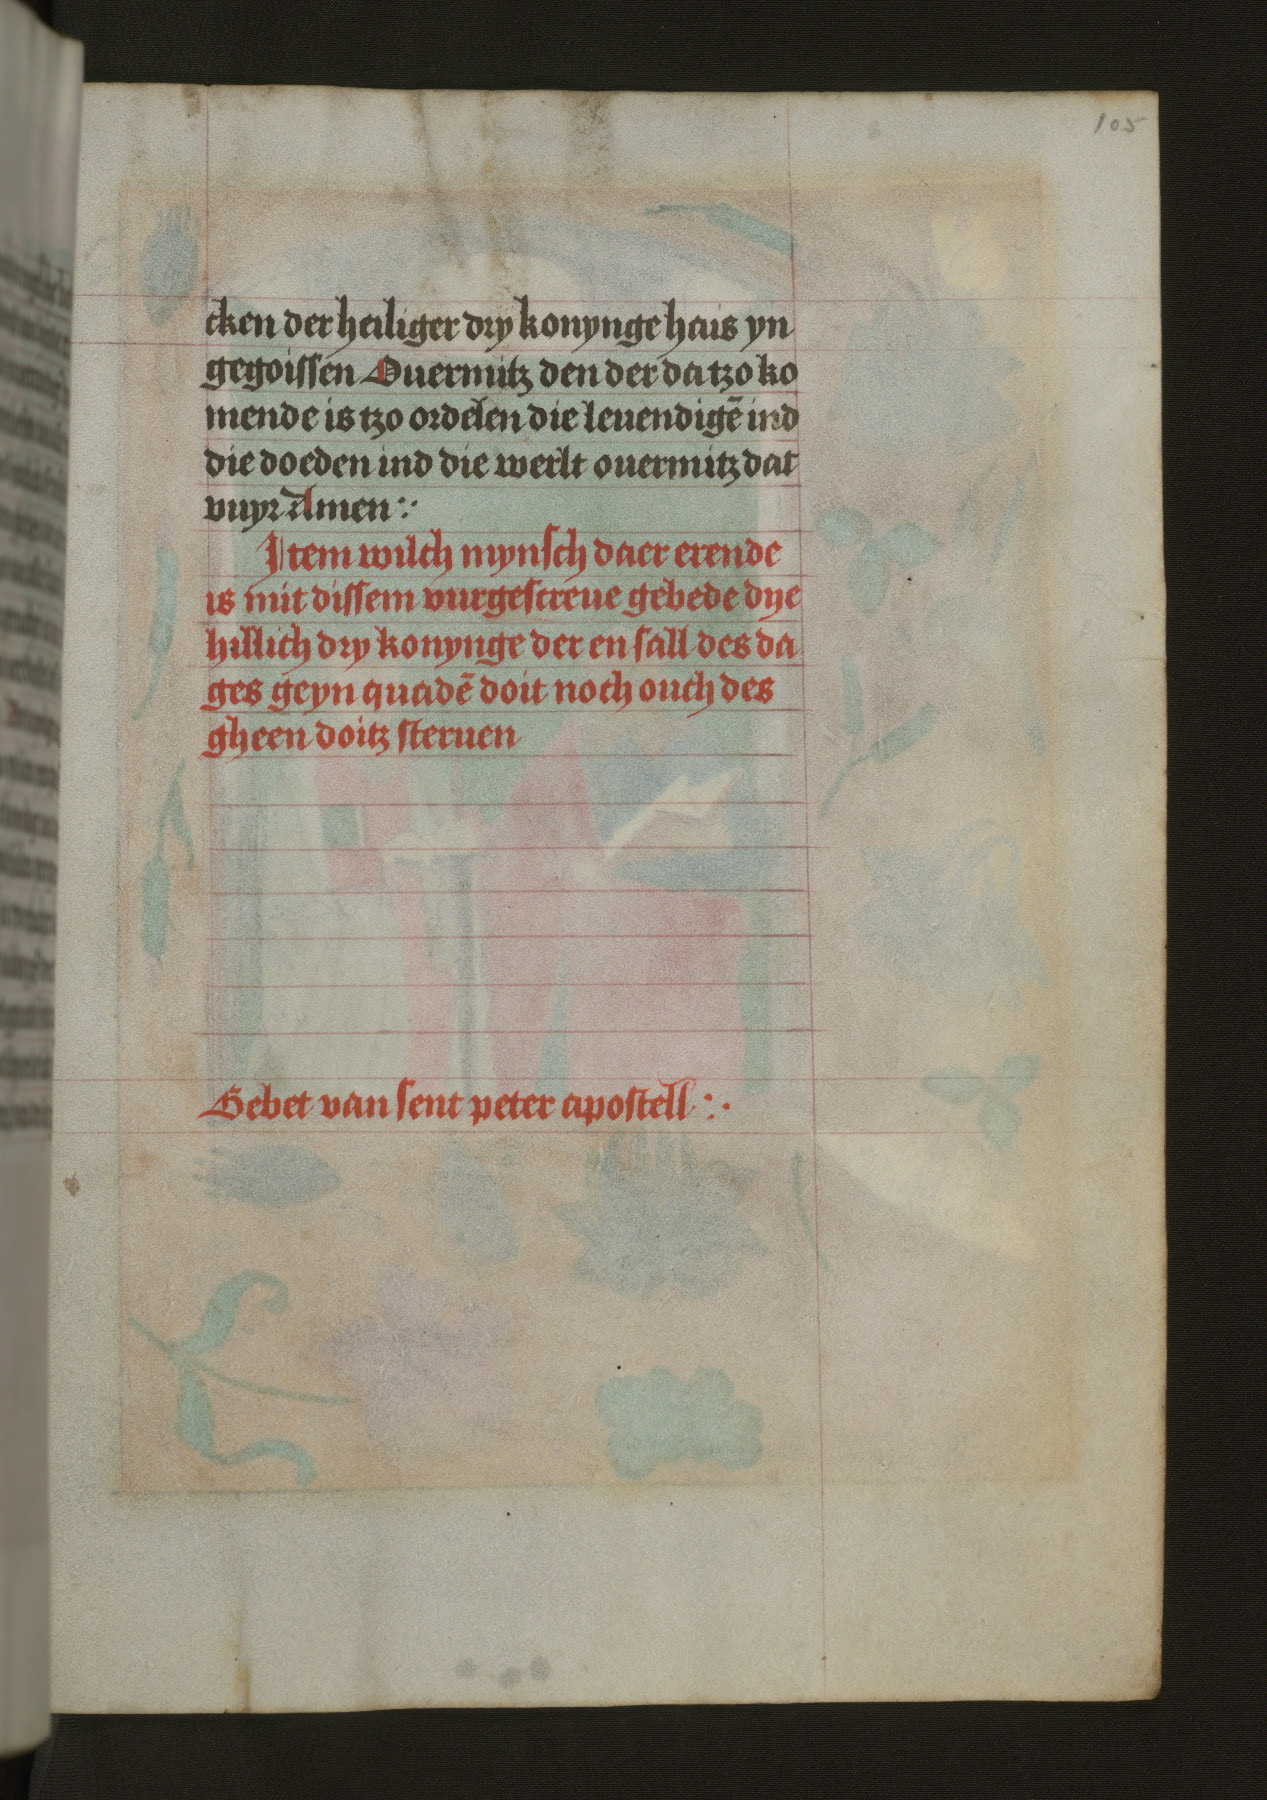 105
cken der heiliger dry konynge hais yn
gegoissen Ouermitz den der da tzo ko
mende is tzo ordelen die leuendigē ind
die doeden ind die werlt ouermitz dat
vuyr Amen :·
Item wilch mynsch daer erende
is mit dissem vurgescreue gebede dye
hillich dry konynge der en sall des da
ges geyn quadē doit noch ouch des
gheen doitz steruen
Gebet van sent peter apostell :·